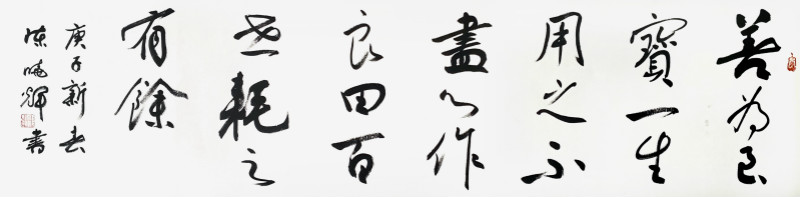 善為至
寶一生
用之不
盡心作
良田百
世耕之
有餘
庚子新春
陳曉輝書